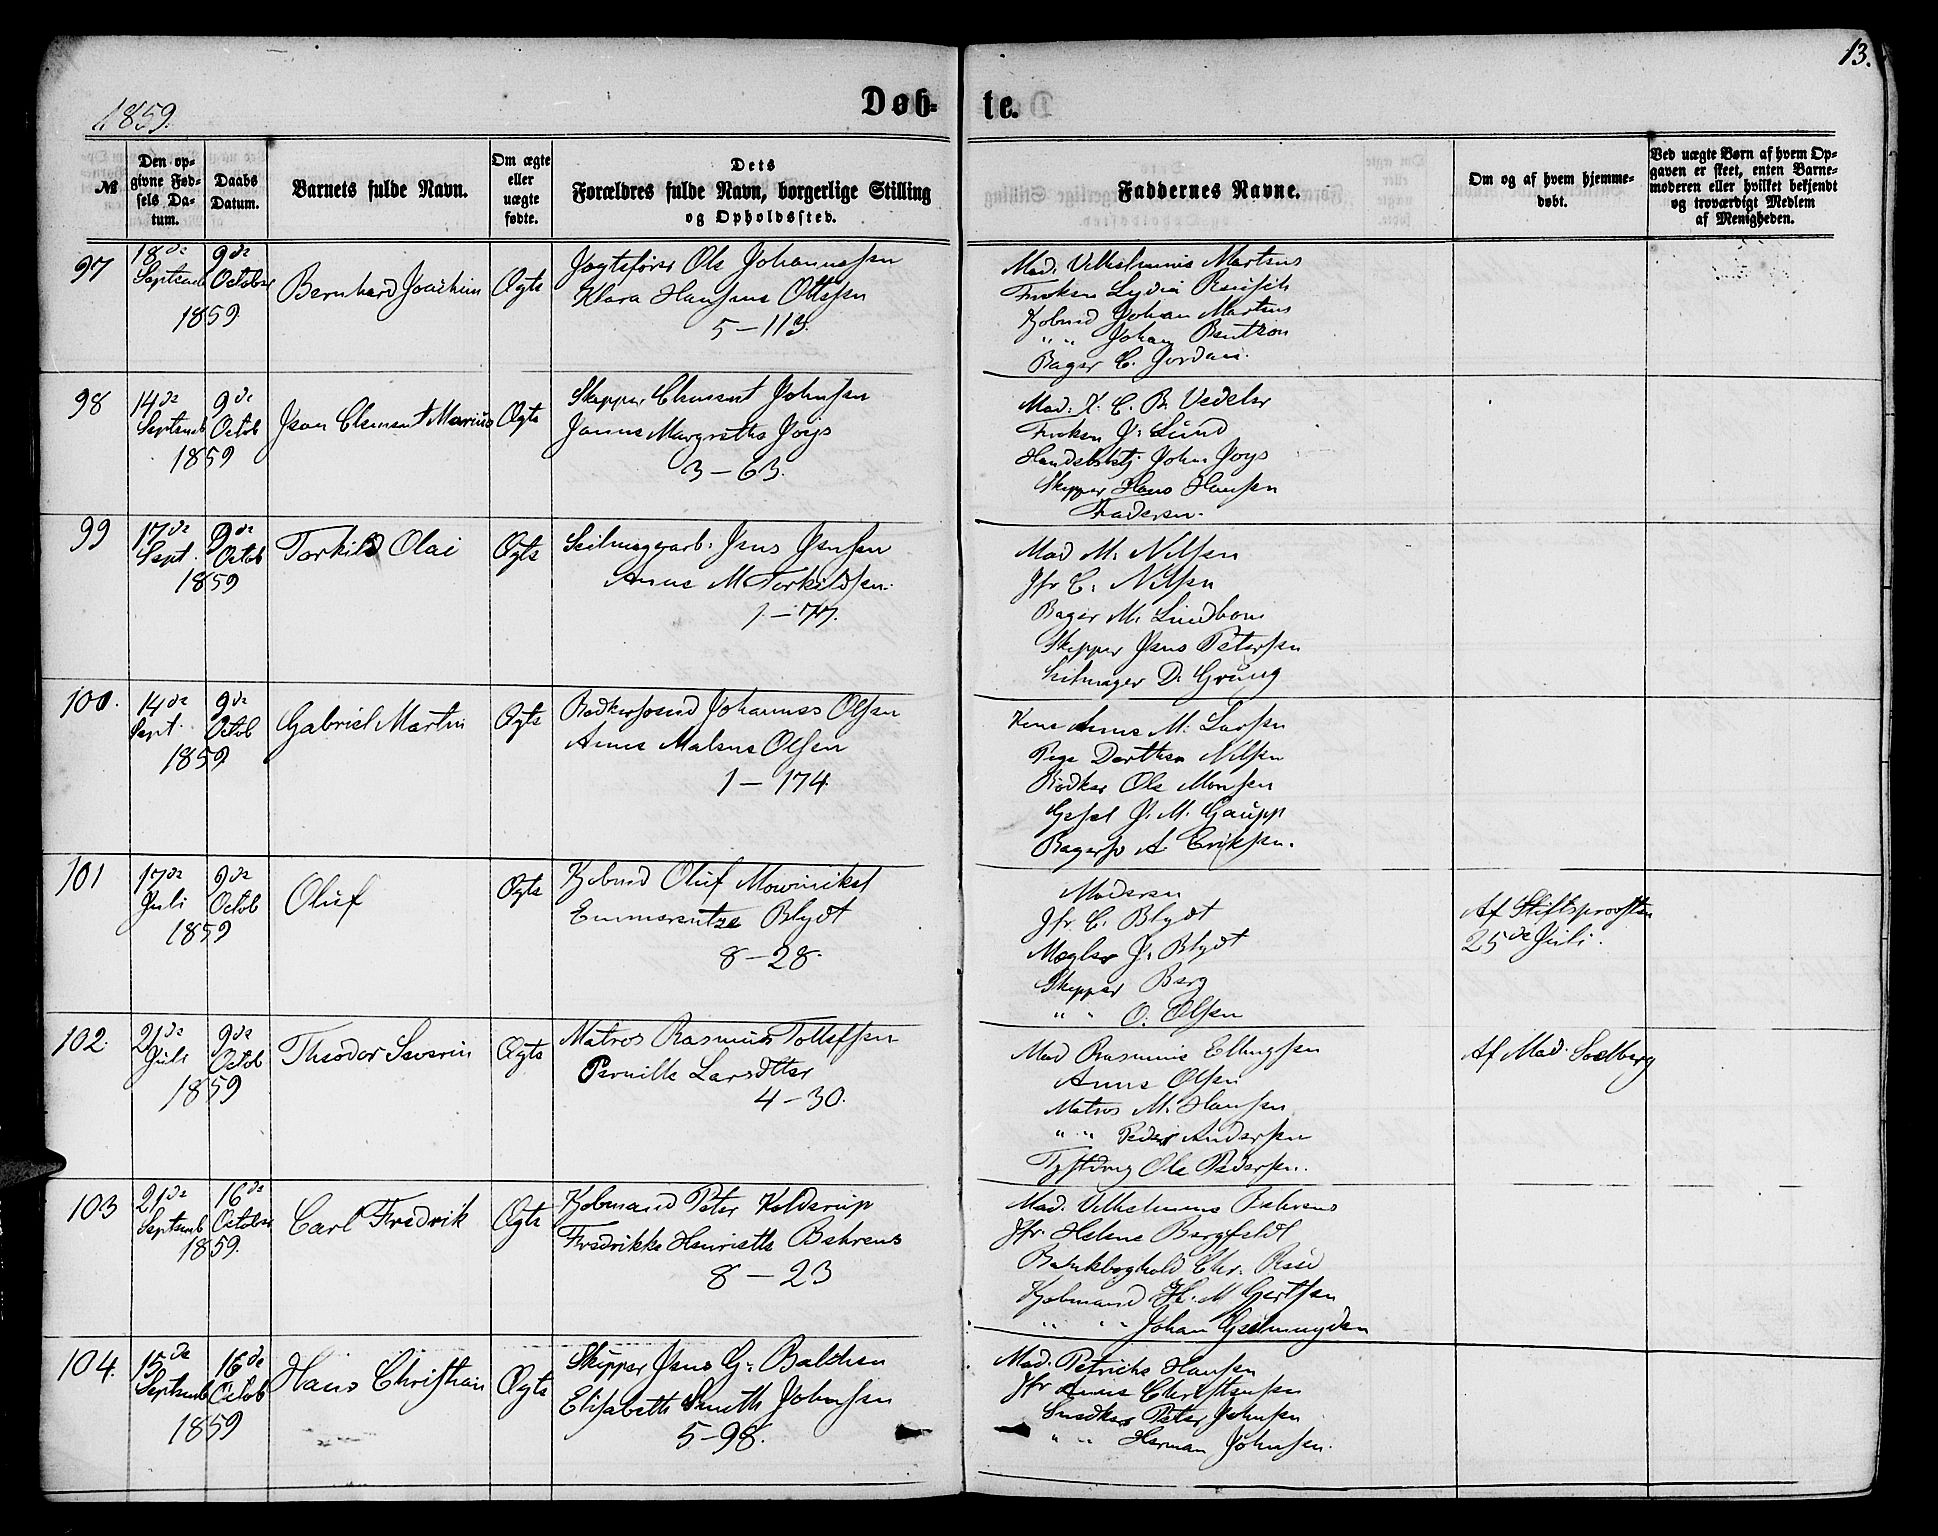 13.
1859.
Døb-
te.
№
Den op-
givne Fød-
sels Da-
tum.
Daabs
Datum.
Barnets fulde Navn.
Om ægte
eller
uægte
fødte.
Dets
Forældres fulde Navn, borgerlige Stilling
og Opholdssted.
Faddernes Navne.
Om og af hvem hjemme-
døbt.
Ved uægte Børn af hvem Op-
gaven er skeet, enten Barne-
moderen eller hvilket bekjendt
og troværdigt Medlem
af Menigheden.
97
18de
Septemb
9de
October
1859
Bernhard Joachim
Ægte
Jagtefører Ole Johannessen
Klara Hansine Ottesen
5-113.
Mad. Vilhelmine Martens
Frøken Lydia
Kjøbmd Johan Martens
" " Johan Bentzon
Bager C. Jordan.
98
14de
Septemb
9de
Octob
1859
Jean Clement Marius
Ægte
Skipper Clement Johnsen
Janna Margrethe Joys
3-63.
Mad. K. C. B. Vedeler
Frøken J. Lund
John Joys
Skipper Hans Hansen
Faderen.
99
17de
Sept.
9de
Octob
1859
Torkild Olai
Ægte
Seilmagerarb. Jens Jensen
Anne M Torkildsen.
1-77.
Mad M. Nilsen
Jfr C. Nilsen
Bager M. Lindbom
Skipper Jens Petersen
Seilmager D. Grung
100.
14de
Sept.
9de
Octob
1859
Gabriel Martin
Ægte
Bødkersvend Johannes Olsen
Anne Malene Olsen
1-174.
Kone Anne M. Larsen
Pige Dorthea Nilsen
Bødker Ole Monsen
Gesel J. M. Gaupp
Bagersv A. Eriksen.
101
17de
Juli
9de
Octob
1859
Oluf
Ægte
Kjøbmd Oluf Mowinckel
Emmerentze Blydt
8-28.
Moderen
Jfr C. Blydt
Mægler J. Blydt
Skipper Berg
" " O. Olsen
Af Stiftsprovsten
25de Juli.
102.
21de
Juli
9de
Octob
1859
Theodor Severin
Ægte
Matros Rasmus Tollefsen
Pernille Larsdtter
4-30.
Mad Rasmine Ellingsen
Anne Olsen
Matros M. Hansen
" " Peder Andersen
Ole Pedersen.
Af Mad. Soelberg
103
21de
Septemb
16de
October
1859.
Carl Fredrik
Ægte
Kjøbmand Peter Kolderup
Fredrikke Henriette Behrens
8-23
Mad. Vilhelmine Behrens
Jfr. Helene Bergfeldt
Bankboghold Chr.
Kjøbmand H. M Gertsen
" " Johan Geelmuyden
104.
15de
Septemb
16de
Octob
1859
Hans Christian
Ægte
Skipper Jens G. Balchen
Elisabeth Smith Johnsen
5-98.
Mad. Petricke Hansen
Jfr Anne Christensen
Snedker Peter Johnsen
" " Herman Johnsen.